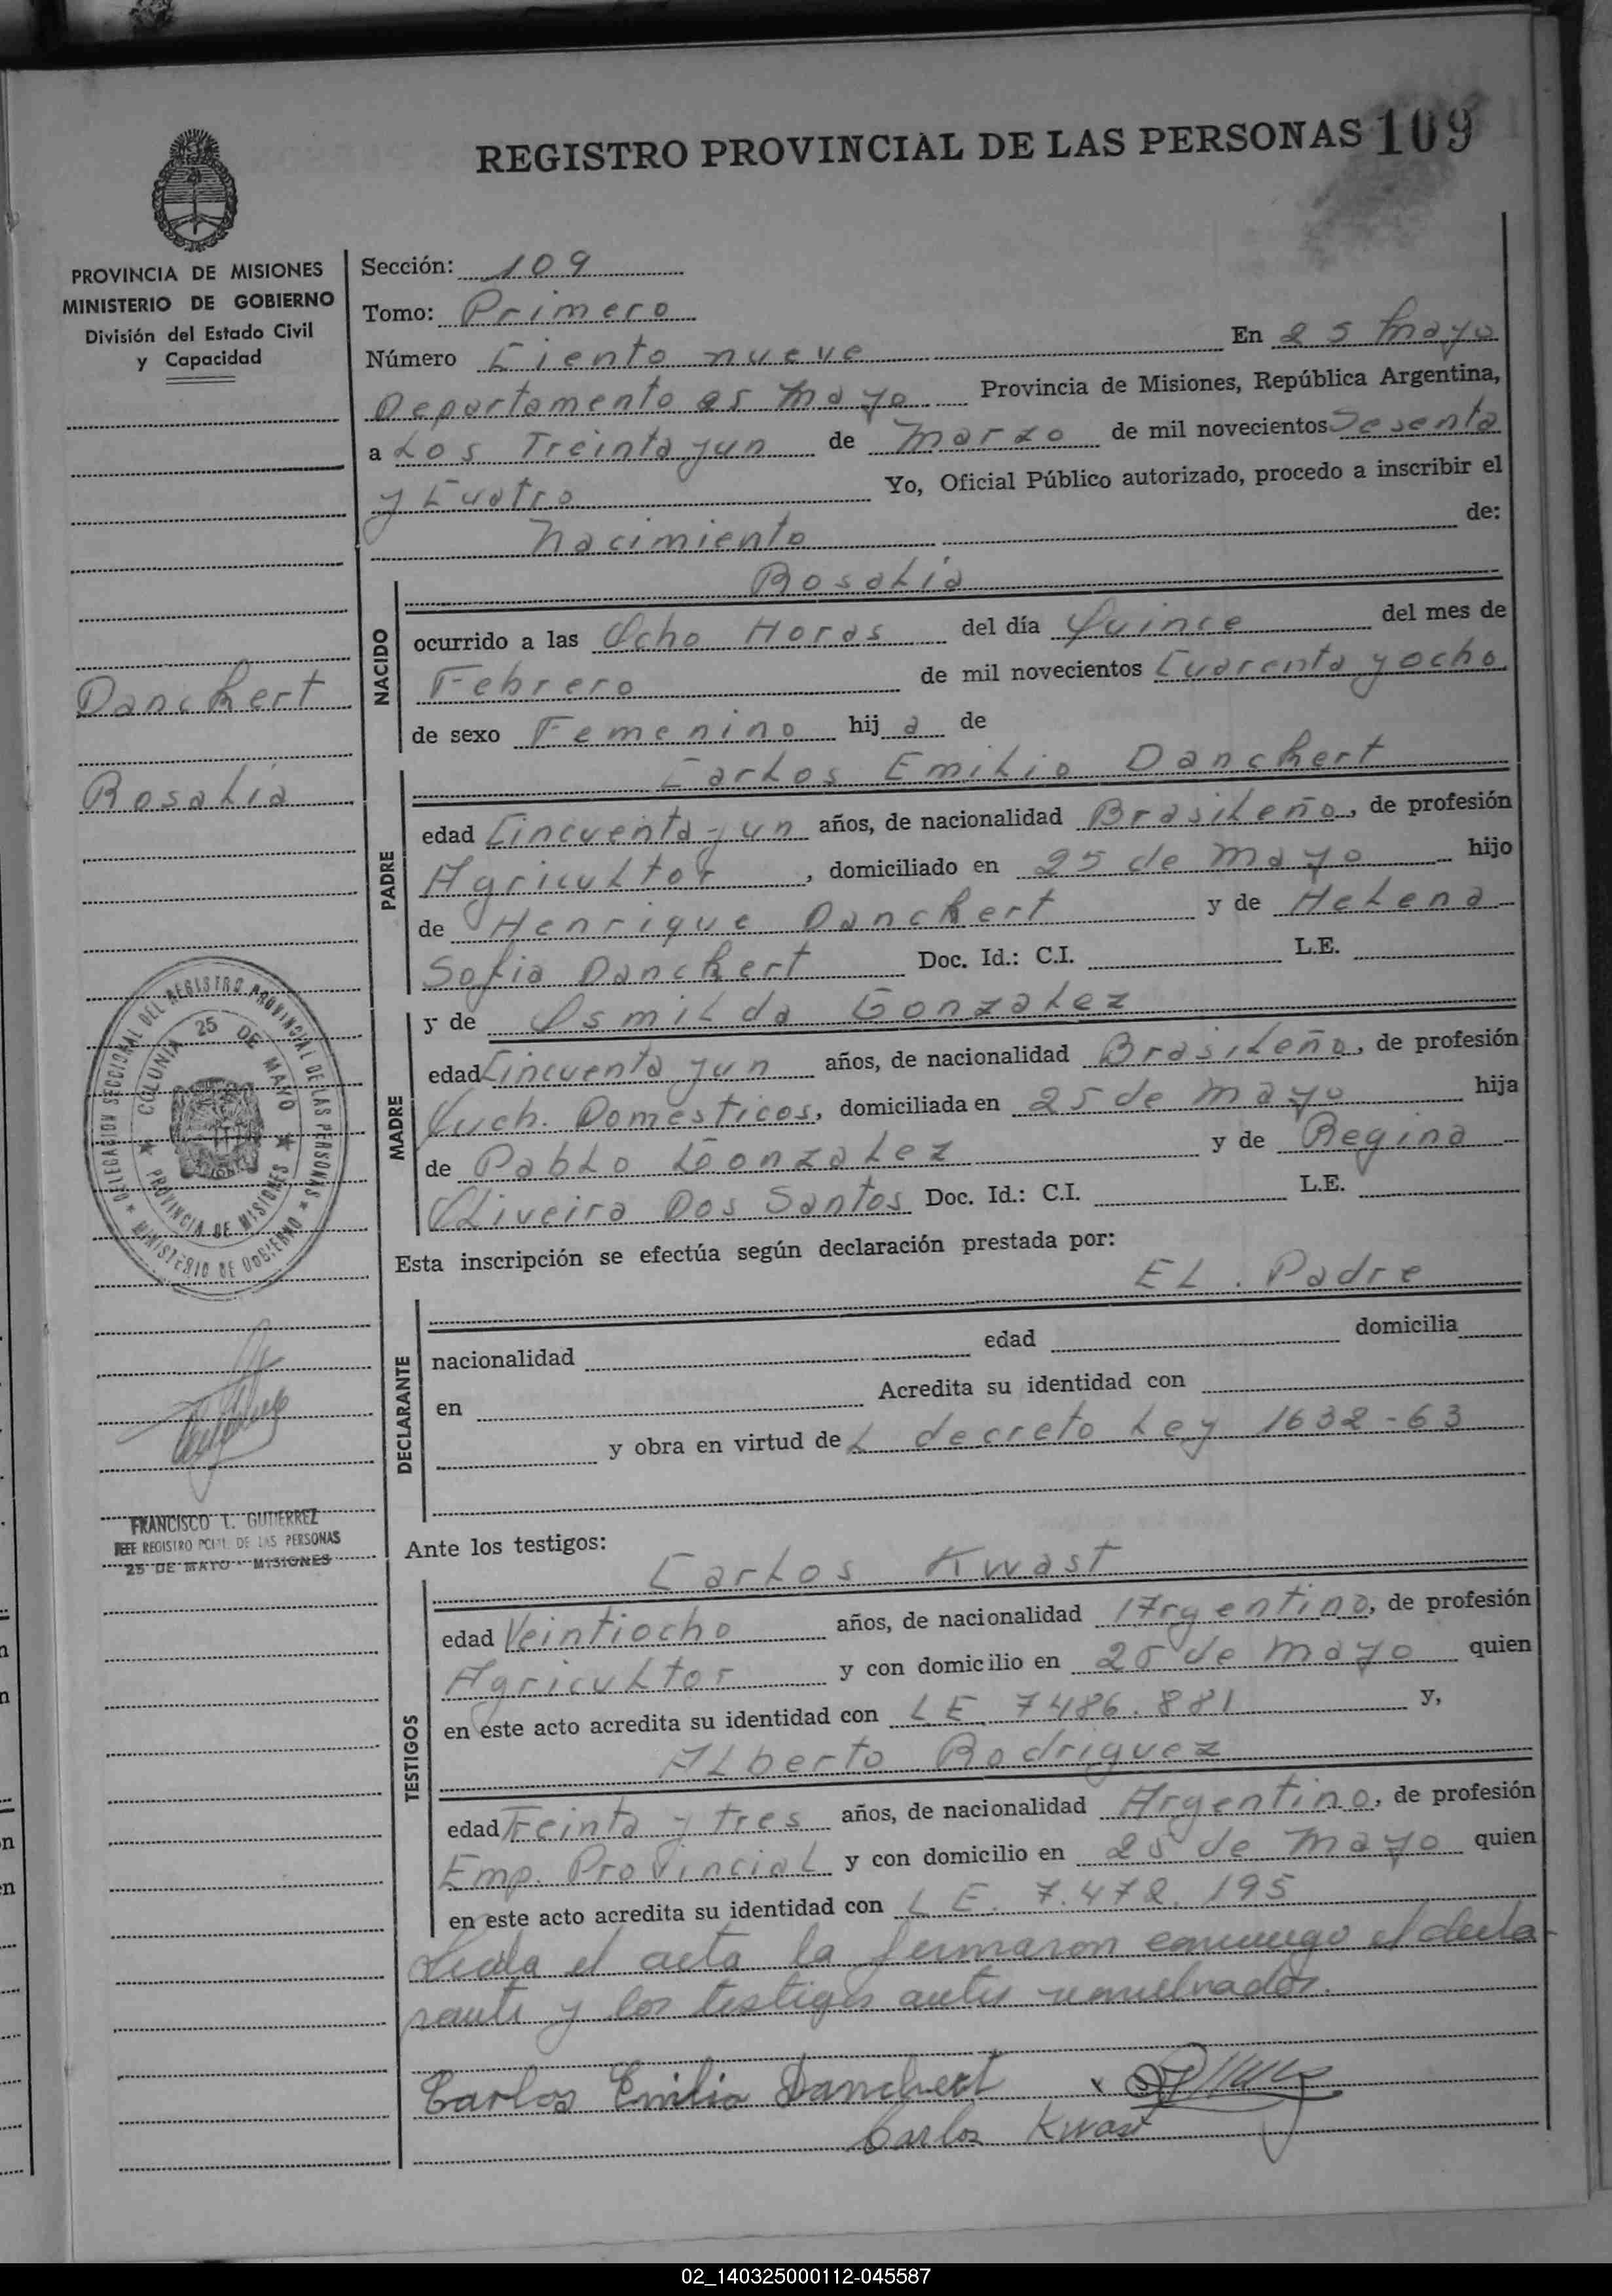 REGISTRO PROVINCIAL DE LAS PERSONAS 109
PROVINCIA DE MISIONES
MINISTERIO DE GOBIERNO
División del Estado Civil
y Capacidad
Sección: 109
Tomo: Primero
Número Ciento nueve En 25 Mayo
Departamento 25 Mayo Provincia de Misiones, República Argentina,
a Los Treinta y un de Marzo de mil novecientos Sesenta
y Cuatro Yo, Oficial Público autorizado, procedo a inscribir el
Nacimiento de:
Rosalia
NACIDO
ocurrido a las Ocho Horas del día Quince del mes de
Febrero de mil novecientos Cuarenta y ocho
de sexo Femenino hija de
Danckert
Rosalia
Carlos Emilio Danckert
PADRE
edad Cincuenta y un años, de nacionalidad Brasileño, de profesión
Agricultor, domiciliado en 25 de Mayo hijo
de Henrique Danckert y de Helena
Sofia Danckert Doc. Id.: C.I. L.E.
y de Osmilda Gonzalez
MADRE
edad Cincuenta y un años, de nacionalidad Brasileña, de profesión
Queh. Domesticos, domiciliada en 25 de Mayo hija
de Pablo Gonzalez y de Regina
Oliveira Dos Santos Doc. Id.: C.I. L.E.
DELEGACION SECCIONAL DEL REGISTRO PROVINCIAL DE LAS PERSONAS
COLONIA 25 DE MAYO
PROVINCIA DE MISIONES
MINISTERIO DE GOBIERNO
Esta inscripción se efectúa según declaración prestada por:
EL. Padre
DECLARANTE
nacionalidad edad domicilia
en Acredita su identidad con
y obra en virtud deL decreto Ley 1632-63
FRANCISCO T. GUTIERREZ
JEFE REGISTRO PCIAL. DE LAS PERSONAS
25 DE MAYO - MISIONES
Ante los testigos:
Carlos Kwast
TESTIGOS
edad Veintiocho años, de nacionalidad Argentino, de profesión
Agricultor y con domicilio en 25 de Mayo quien
en este acto acredita su identidad con L.E. 7486.881 y,
Alberto Rodriguez
edad Treinta y tres años, de nacionalidad Argentino, de profesión
Emp. Provincial y con domicilio en 25 de Mayo quien
en este acto acredita su identidad con L.E. 7.472.195
Leida el acta la firmaron conmigo el decla-
rante y los testigos antes nombrados.
Carlos Emilio Danckert
Carlos Kwast
02_140325000112-045587